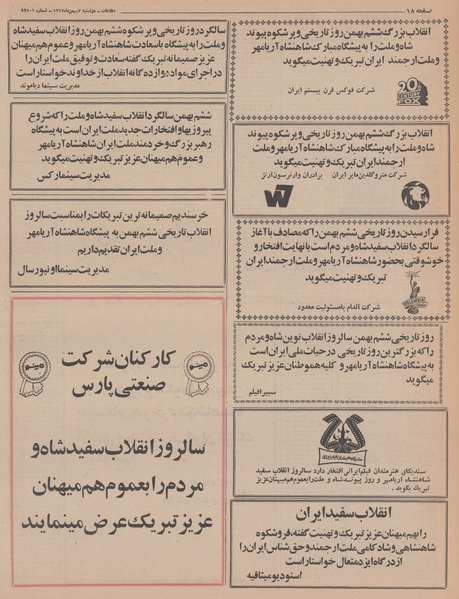 صفحه ۱۸
اطلاعات - دوشنبه ۷ بهمن ماه ۱۳۴۷ - شماره ۱۲۸۰۱
انقلاب بزرگ ششم بهمن روز تاریخی و پرشکوه پیوند
شاه و ملت را به پیشگاه مبارک شاهنشاه آریامهر
و ملت ارجمند ایران تبریک و تهنیت میگوید
20
CENTURY
FOX
شرکت فوکس قرن بیستم ایران
انقلاب بزرگ ششم بهمن روز تاریخی و پرشکوه پیوند
شاه و ملت را به پیشگاه مبارک شاهنشاه آریامهر و ملت
ارجمند ایران تبریک و تهنیت میگوید
شرکت متروگلدین مایر ایران
برادران وارنر سون آرتز
W7
فرا رسیدن روز تاریخی ششم بهمن را که مصادف با آغاز
سالگرد انقلاب سفید شاه و مردم است با نهایت افتخار و
خوشوقتی بحضور شاهنشاه آریامهر و ملت ارجمند ایران
تبریک و تهنیت میگوید
شرکت الدام بامسئولیت محدود
COLUMBIA
روز تاریخی ششم بهمن سالروز انقلاب نوین شاه و مردم
را که بزرگترین روز تاریخی در حیات ملی ایران است
به پیشگاه شاهنشاه آریامهر و کلیه هموطنان عزیز تبریک
میگوید
سیبرا فیلم
سندیکای هنرمندان فیلم ایرانی افتخار دارد سالروز انقلاب سفید
شاهنشاه آریامهر و روز پیوند شاه و ملت را بعموم هم میهنان عزیز
تبریک بگوید.
انقلاب سفید ایران
را بهم میهنان عزیز تبریک و تهنیت گفته، فر و شکوه
شاهنشاهی و شادکامی ملت ارجمند و حق شناس ایران را
از درگاه ایزد متعال خواستار است
استودیو میثاقیه
سالگرد روز تاریخی و پرشکوه ششم بهمن روز انقلاب سفید شاه
و ملت را به پیشگاه با سعادت شاهنشاه آریامهر و عموم هم میهنان
عزیز صمیمانه تبریک گفته سعادت و توفیق ملت ایران را
در اجرای مواد دوازده گانه انقلاب از خداوند خواستار است
مدیریت سینما دیاموند
ششم بهمن سالگرد انقلاب سفید شاه و ملت را که شروع
پیروزیها و افتخارات جدید ملت ایران است به پیشگاه
رهبر بزرگ و خردمند ملت ایران شاهنشاه آریامهر
و عموم هم میهنان عزیز تبریک و تهنیت میگوید
مدیریت سینما رکس
خرسندیم صمیمانه ترین تبریکات را بمناسبت سالروز
انقلاب تاریخی ششم بهمن به پیشگاه شاهنشاه آریامهر
و ملت ایران تقدیم داریم
مدیریت سینما اونیورسال
مینو
کارکنان شرکت
صنعتی پارس
مینو
سالروز انقلاب سفید شاه و
مردم را بعموم هم میهنان
عزیز تبریک عرض مینمایند